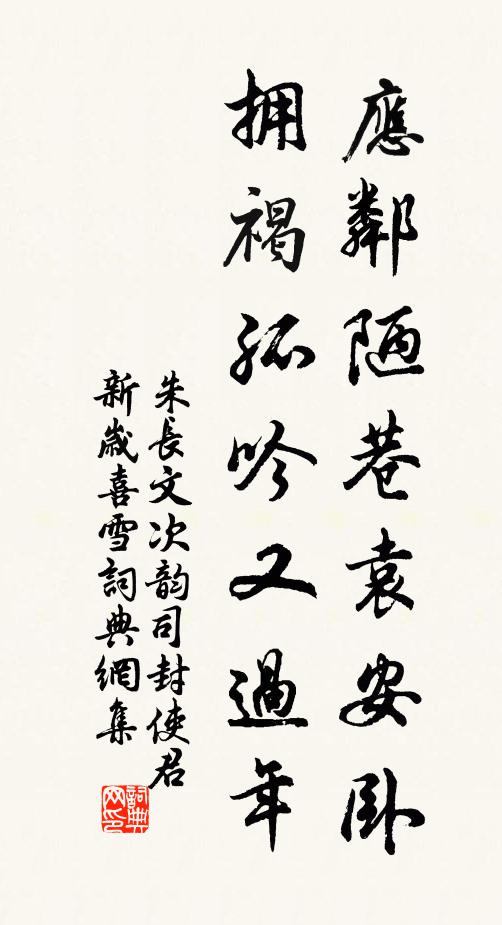 應鄰陋巷袁安臥
拥褐孤吟又過年
朱長文次韵司封使君
新歲喜雪詞典網集
詞典
网印